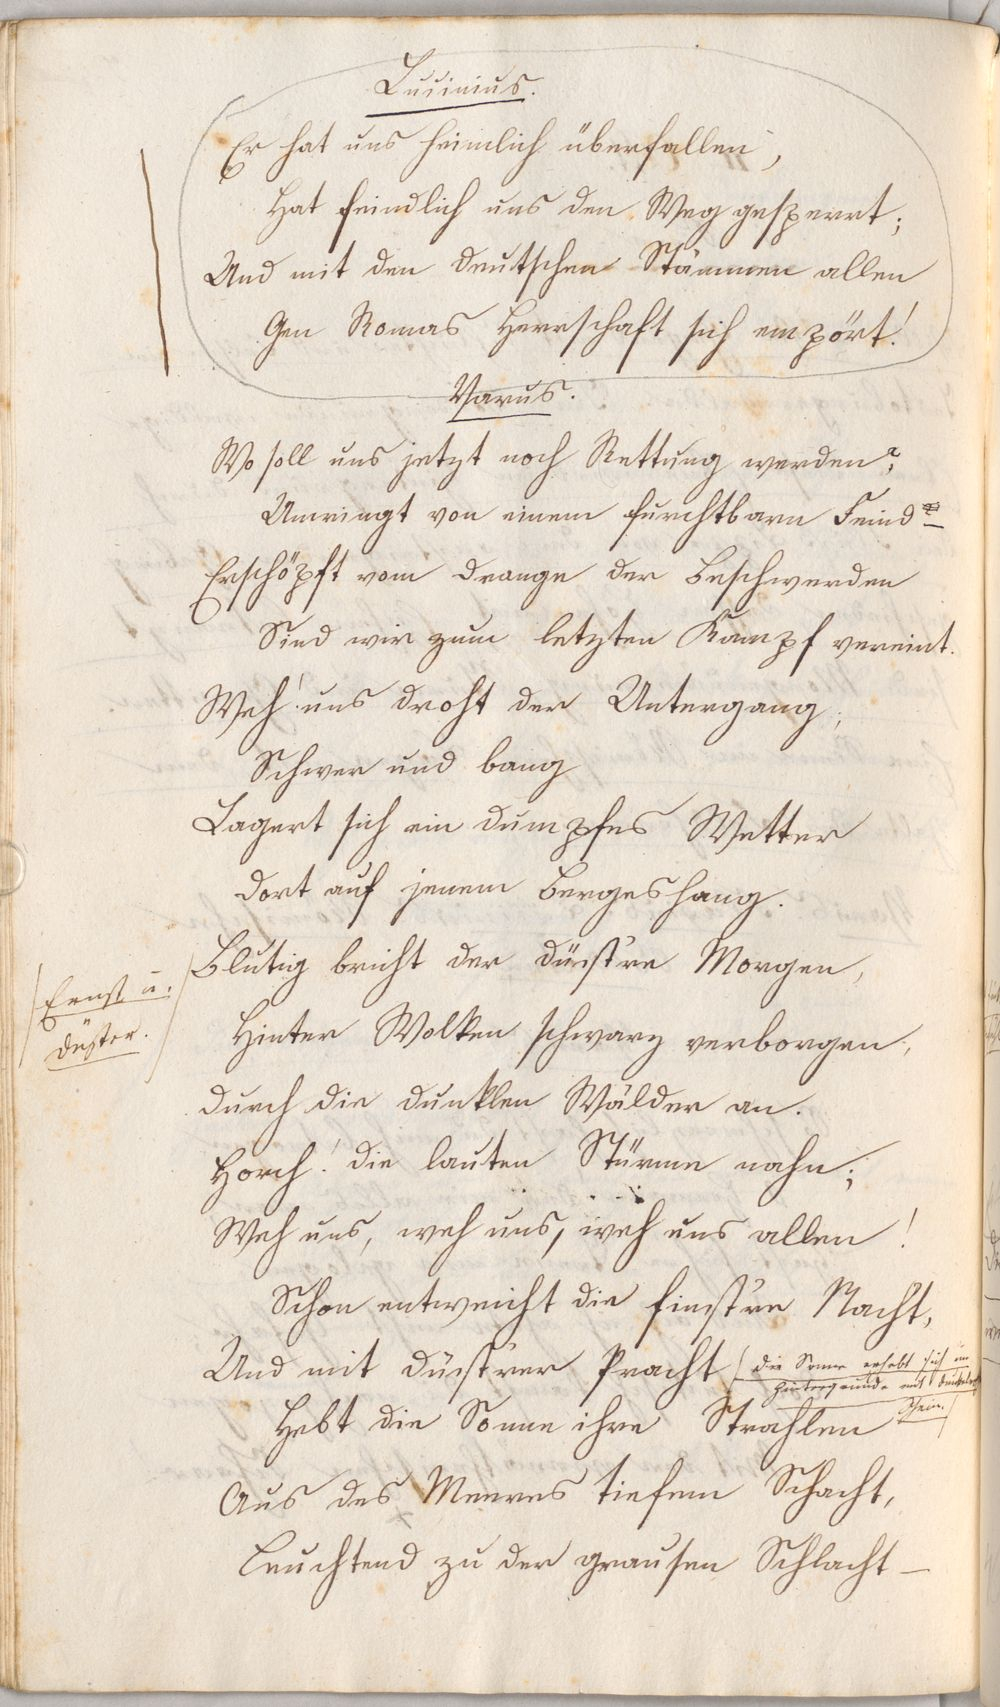 Lucinius.
Er hat uns heimlich überfallen,
Hat feindlich uns den Weg gesperrt;
Und mit den deutschen Stämmen allen
Gen Romas Herrschaft sich empört!
Varus.
Wo soll uns jetzt noch Rettung werden?
Umringt von einem furchtbarn Feind
Erschöpft vom Drange der Beschwerden
Sind wir zum letzten Kampf vereint.
Weh! uns droht der Untergang;
Schwer und bang
Lagert sich ein dumpfes Wetter
Dort auf jenem Bergeshang.
Blutig bricht der düst're Morgen,
Ernst u.
düster.
Hinter Wolken schwarz verborgen,
Durch die dunklen Wälder an.
Horch! die lauten Stürme nahn;
Weh uns, weh uns, weh uns allen!
Schon entweicht die finst're Nacht,
Und mit düst'rer Pracht (die Sonne erhebt sich im
Hintergrunde mit dunkelm
Schein.)
Hebt die Sonne ihre Strahlen
Aus des Meeres tiefem Schacht,
Leuchtend zu der grausen Schlacht –